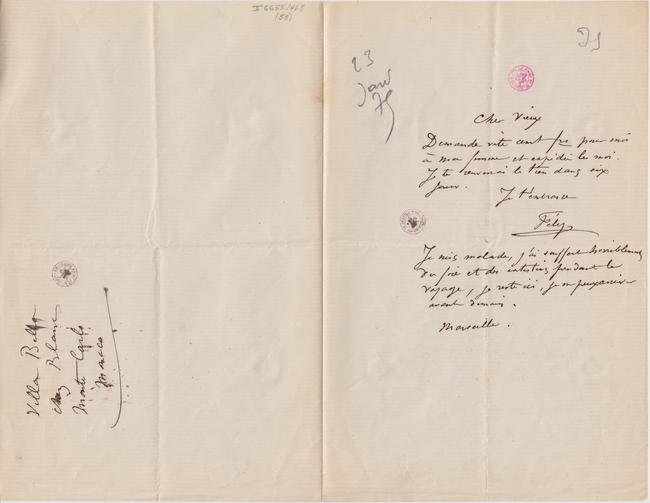 (58)
Villa Bella
chez Blanc
Monte Carlo
Monaco
23
Janv
75
75
Cher Vieux
Demande vite cent frs pour moi
à ma femme et expédie les moi.
Je te renverrai le tien dans six
jours.
Je t'embrasse
Fély
Je suis malade, j'ai souffert horriblement
du foie et des intestins pendant le
voyage, je reste ici, je ne peux arriver
avant demain.
Marseille.